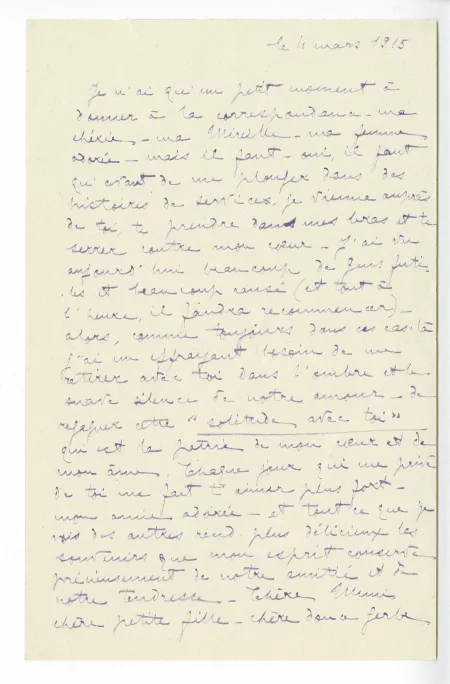 le 4 mars 1915
Je n'ai qu'un petit moment à
donner à la correspondance - ma
chérie, - ma Mireille - ma femme
adorée - mais il faut - oui, il faut
qu'avant de me plonger dans des
histoires de services, je vienne auprès
de toi, te prendre dans mes bras et te
serrer contre mon cœur - J'ai vu
aujourd'hui beaucoup de gens futi
les et beaucoup causé (et tout à
l'heure, il faudra recommencer) -
alors, comme toujours dans ces cas-là
j'ai un effrayant besoin de me
retirer avec toi dans l'ombre et le
suave silence de notre amour - de
regagner cette "solitude avec toi"
qui est la patrie de mon cœur et de
mon âme. Chaque jour qui me prive
de toi me fait t'aimer plus fort -
mon amie adorée - et tout ce que je
vois des autres rend plus délicieux les
souvenirs que mon esprit conserve
précieusement de notre amitié et de
notre tendresse - Chère Mimi
chère petite fille - chère douce